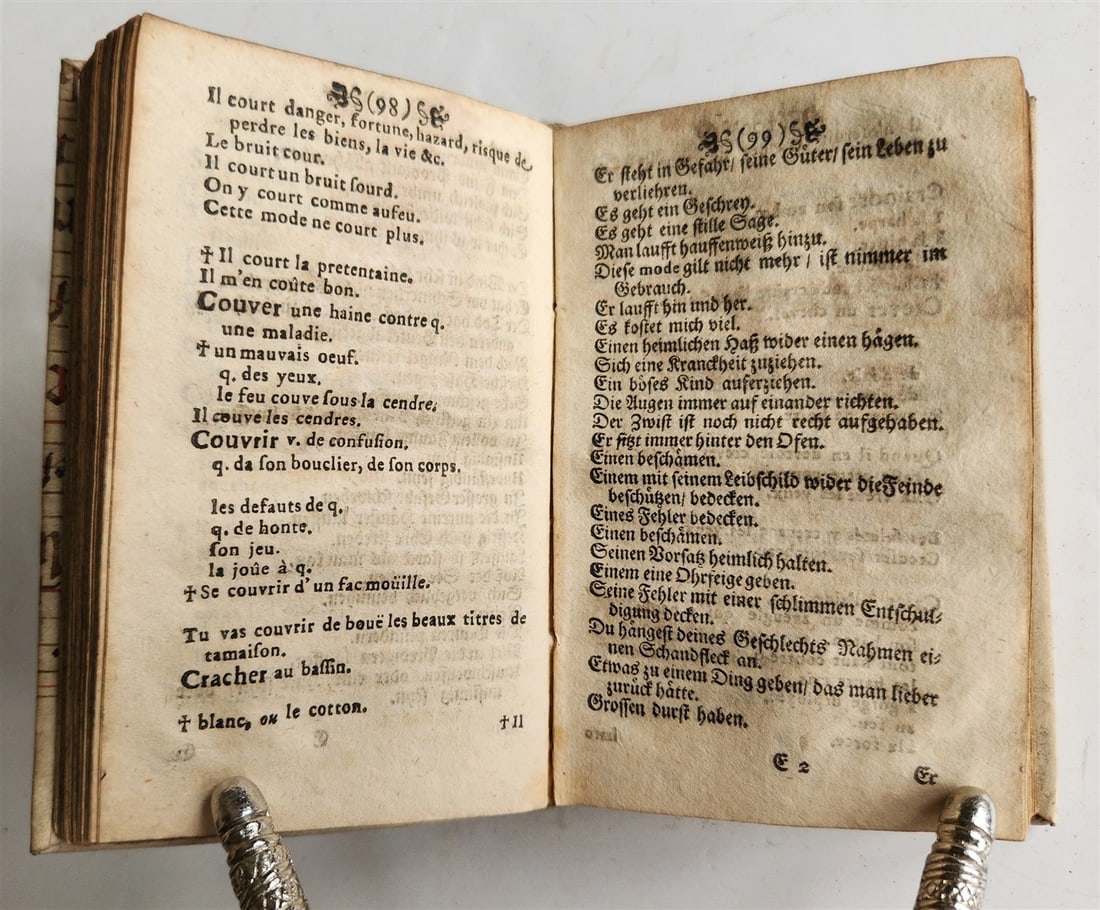 (98)
Il court danger, fortune, hazard, risque de
perdre les biens, la vie &c.
Le bruit cour.
Il court un bruit ſourd.
On y court comme aufeu.
Cette mode ne court plus.
† Il court la pretentaine.
Il m'en coûte bon.
Couver une haine contre q.
une maladie.
† un mauvais oeuf.
q. des yeux.
le feu couve ſous la cendre.
Il couve les cendres.
Couvrir v. de confuſion.
q. da ſon bouclier, de ſon corps.
les defauts de q.
q. de honte.
ſon jeu.
la joûe à q.
† Se couvrir d'un fac moüille.
Tu vas couvrir de bouë les beaux titres de
tamaiſon.
Cracher au baſſin.
† blanc, ou le cotton.
† Il
(99)
Er ſteht in Gefahr/ ſeine Güter/ ſein Leben zu
verliehren.
Es geht ein Geſchrey.
Es geht eine ſtille Sage.
Man laufft hauffenweiß hinzu.
Dieſe mode gilt nicht mehr / iſt nimmer im
Gebrauch.
Er laufft hin und her.
Es koſtet mich viel.
Einen heimlichen Haß wider einen hägen.
Sich eine Kranckheit zuziehen.
Ein böſes Kind auferziehen.
Die Augen immer auf einander richten.
Der Zwiſt iſt noch nicht recht aufgehaben.
Er ſitzt immer hinter den Ofen.
Einen beſchämen.
Einem mit ſeinem Leibſchild wider die Feinde
beſchützen/ bedecken.
Eines Fehler bedecken.
Einen beſchämen.
Seinen Vorſatz heimlich halten.
Einem eine Ohrfeige geben.
Seine Fehler mit einer ſchlimmen Entſchul-
digung decken.
Du hängeſt deines Geſchlechts Nahmen ei-
nen Schandfleck an.
Etwas zu einem Ding geben/ das man lieber
zurück hätte.
Groſſen durſt haben.
E 2
Er